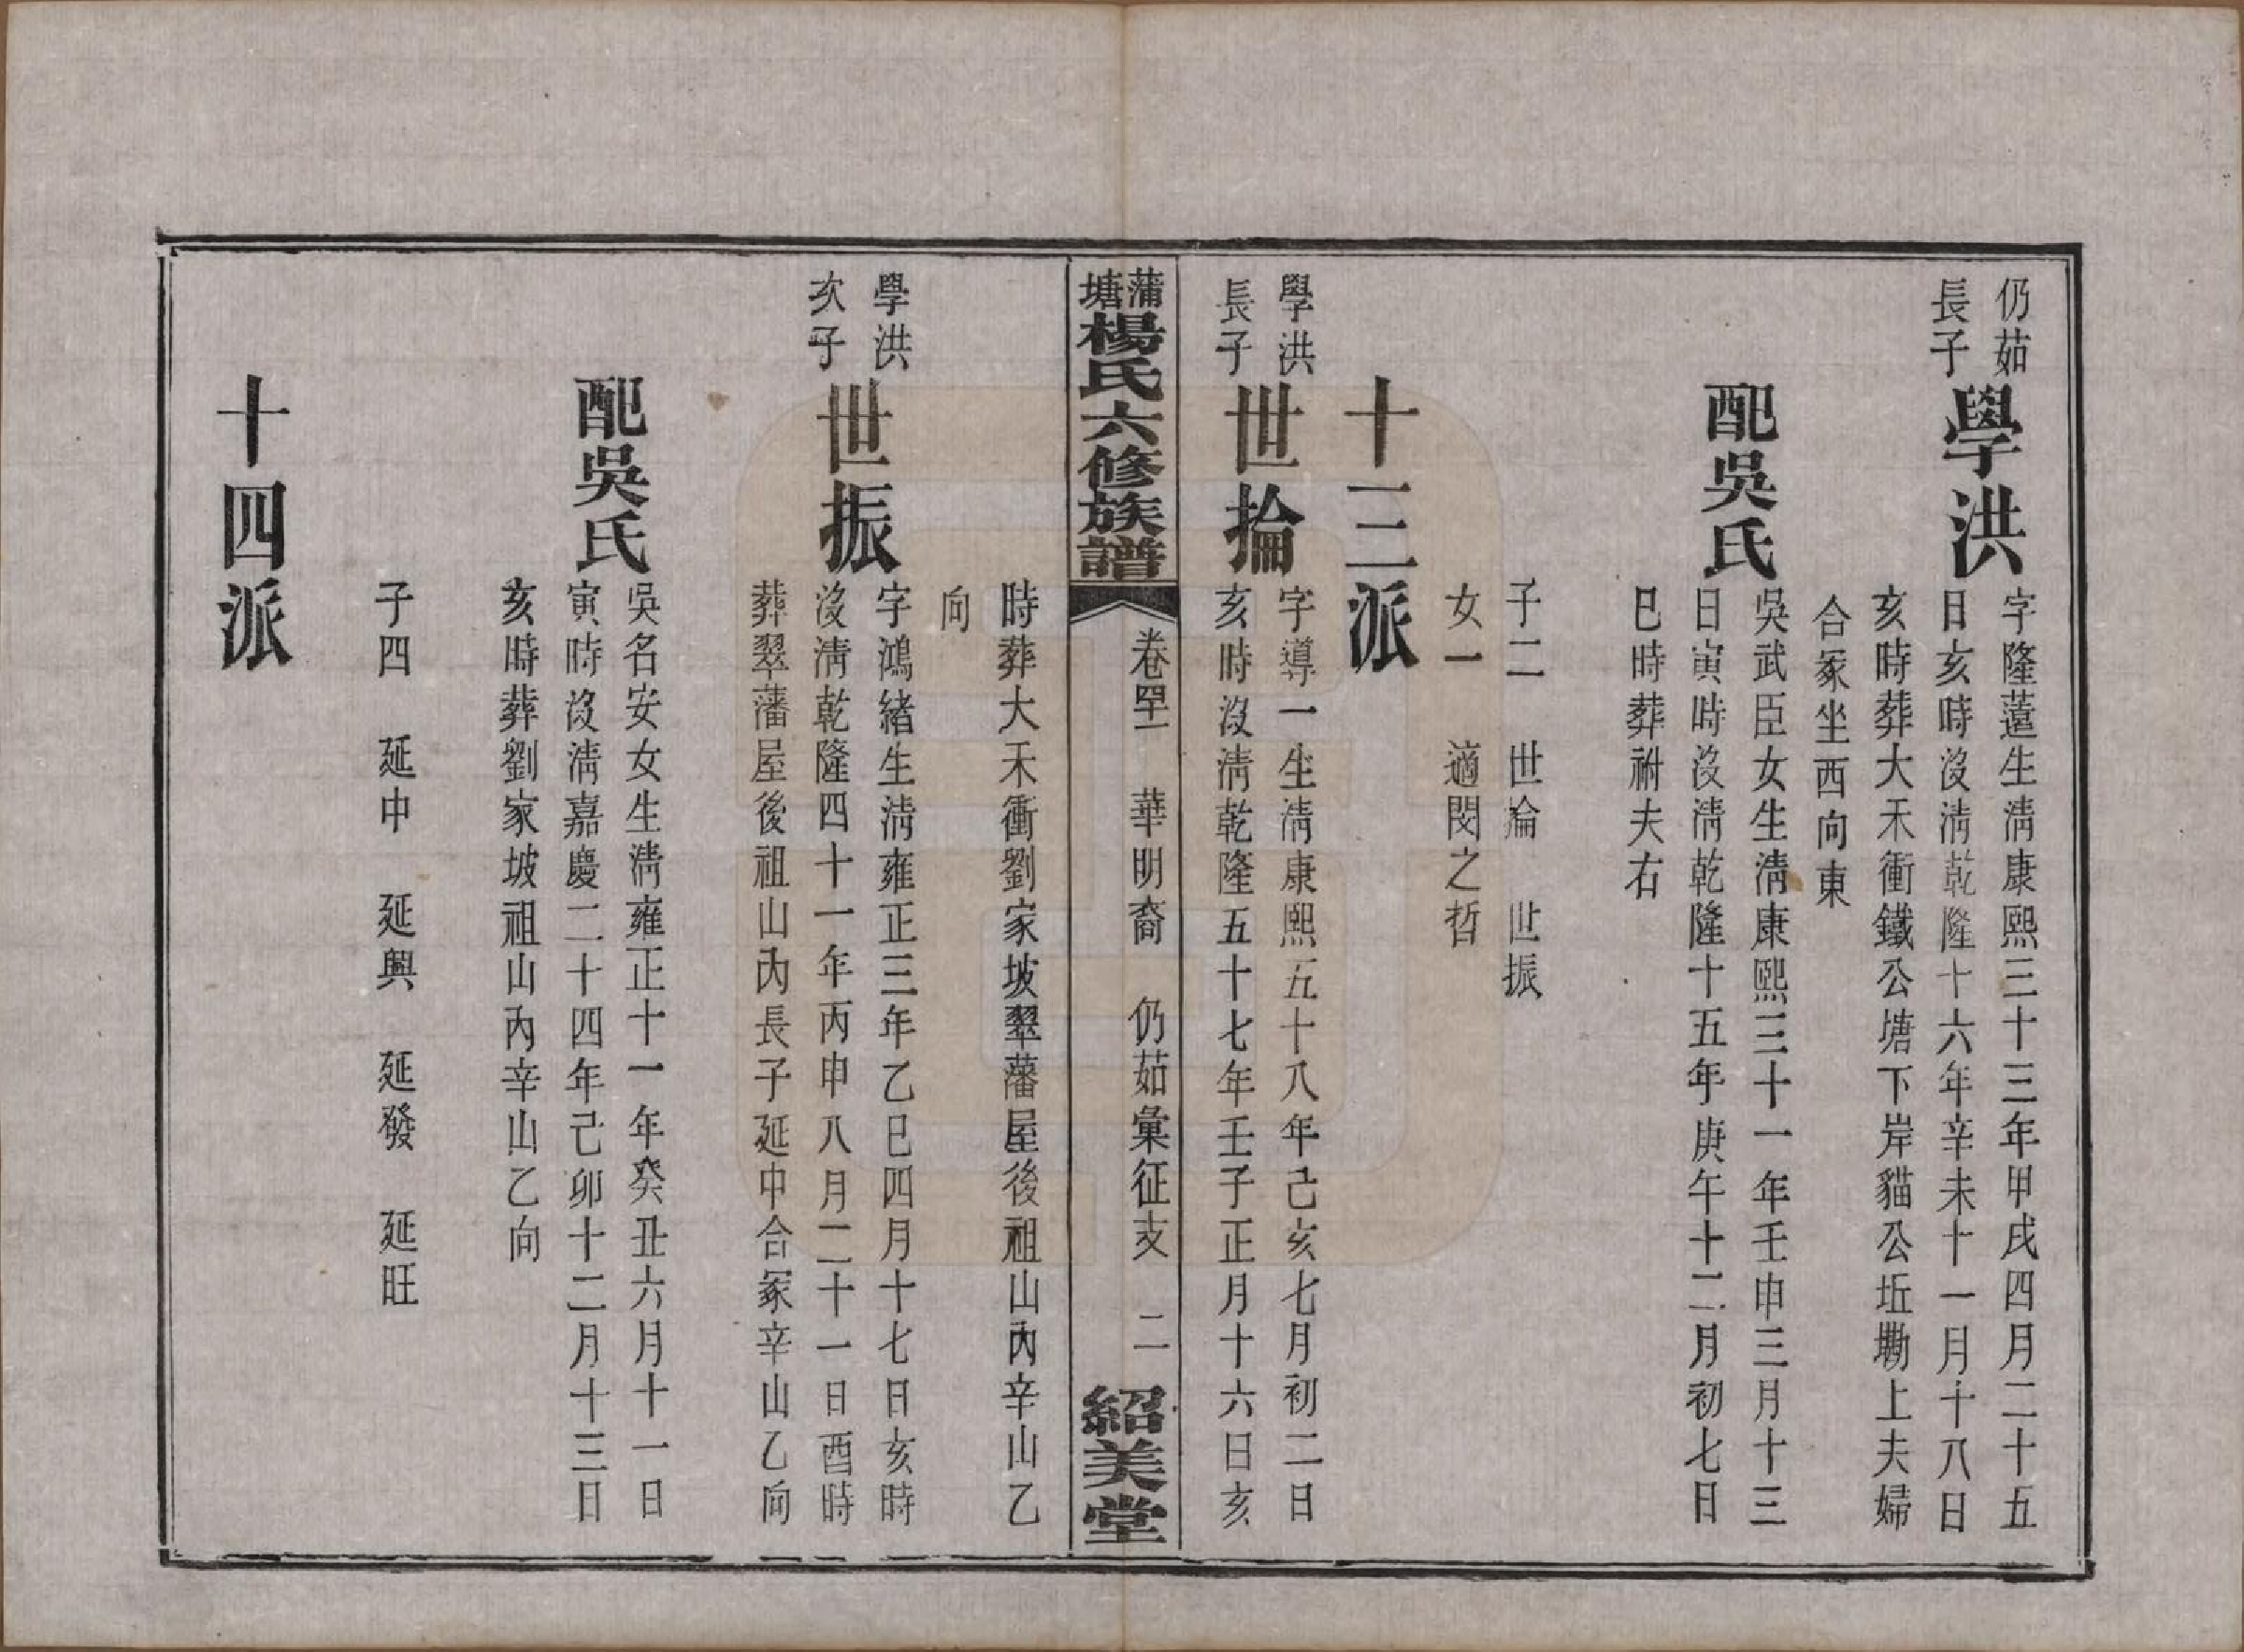 仍茹
長子
學洪
字隆薳生清康熙三十三年甲戌四月二十五
日亥時沒清乾隆十六年辛未十一月十八日
亥時葬大禾衝鐵公塘下岸貓公坵墈上夫婦
合冢坐西向東
配吳氏
吳武臣女生清康熙三十一年壬申三月十三
日寅時沒清乾隆十五年庚午十二月初七日
巳時葬祔夫右
子二 世掄 世振
女一 適閔之哲
十三派
學洪
長子
世掄
字導一生清康熙五十八年己亥七月初二日
亥時沒清乾隆五十七年壬子正月十六日亥
蒲塘楊氏六修族譜 卷四十一 華明裔 仍茹彙征支 二 紹美堂
時葬大禾衝劉家坡翠藩屋後祖山內辛山乙
向
學洪
次子
世振
字鴻緒生清雍正三年乙巳四月十七日亥時
沒清乾隆四十一年丙申八月二十一日酉時
葬翠藩屋後祖山內長子延中合冢辛山乙向
配吳氏
吳名安女生清雍正十一年癸丑六月十一日
寅時沒清嘉慶二十四年己卯十二月十三日
亥時葬劉家坡祖山內辛山乙向
子四 延中 延興 延發 延旺
十四派